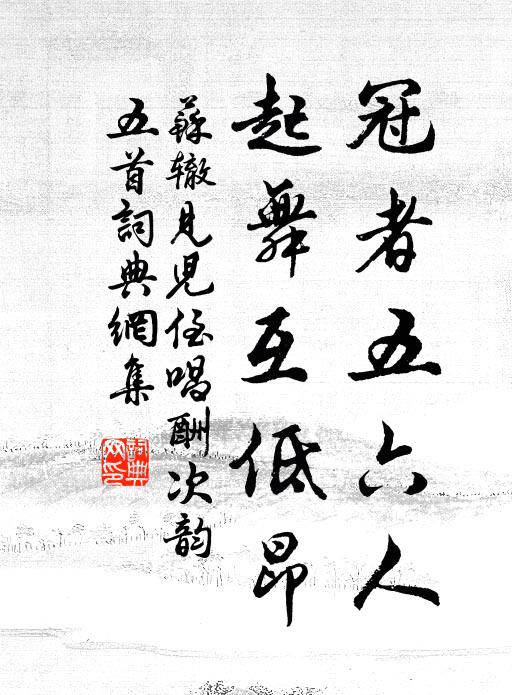 冠者五六人
起舞互低昂
蘇辙見兒侄唱酬次韵
五首詞典網集